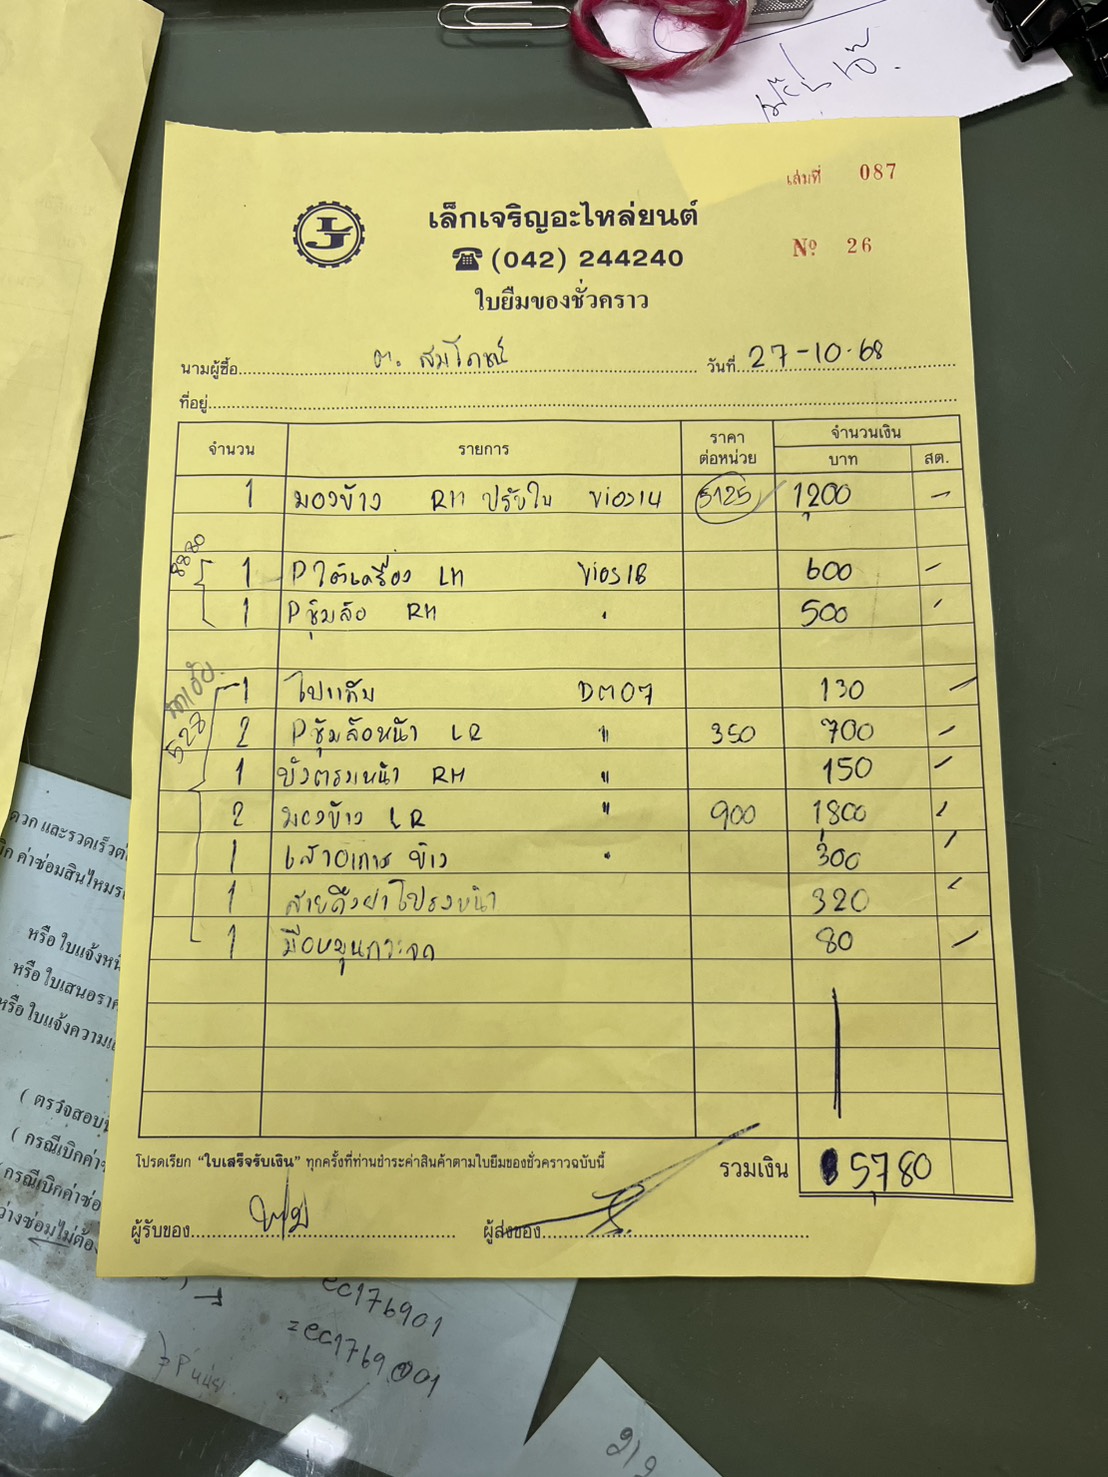 เล่มที่ 087
เล็กเจริญอะไหล่ยนต์
LJ
(042) 244240
Nº 26
ใบยืมของชั่วคราว
นามผู้ซื้อ อ. สมโภชน์ วันที่ 27-10-68
ที่อยู่
จำนวน รายการ ราคาต่อหน่วย จำนวนเงิน
บาท สต.
1 มองข้าง RH ปรับใบ Vios14 5125 1,200 -
8880
1 P ใต้เครื่อง LH Vios18 600 -
1 P ซุ้มล้อ RH " 500 -
528
1 ไฟแก้ม DM07 130 -
2 P ซุ้มล้อหน้า LR " 350 700 -
1 บังตรงหน้า RH " 150 -
2 มองข้าง LR " 900 1800 -
1 เสาอากาศ ข้าง " 300 -
1 สายดึงฝาโปรงหน้า 320 -
1 มือหมุนกระจก 80 -
โปรดเรียก "ใบเสร็จรับเงิน" ทุกครั้งที่ท่านชำระค่าสินค้าตามใบยืมของชั่วคราวฉบับนี้
รวมเงิน 5,780
ผู้รับของ ผู้ส่งของ
ดวก และรวดเร็วต่
ค่าซ่อมสินไหม
หรือ ใบแจ้งหนี้
หรือ ใบเสนอราค
หรือ ใบแจ้งความ
( ตรวจสอบ
( กรณีเบิกค่า
(กรณีเบิกค่าซ่อ
ว่างซ่อมไม่ต้อง
ec176901
=ec1769001
2/2